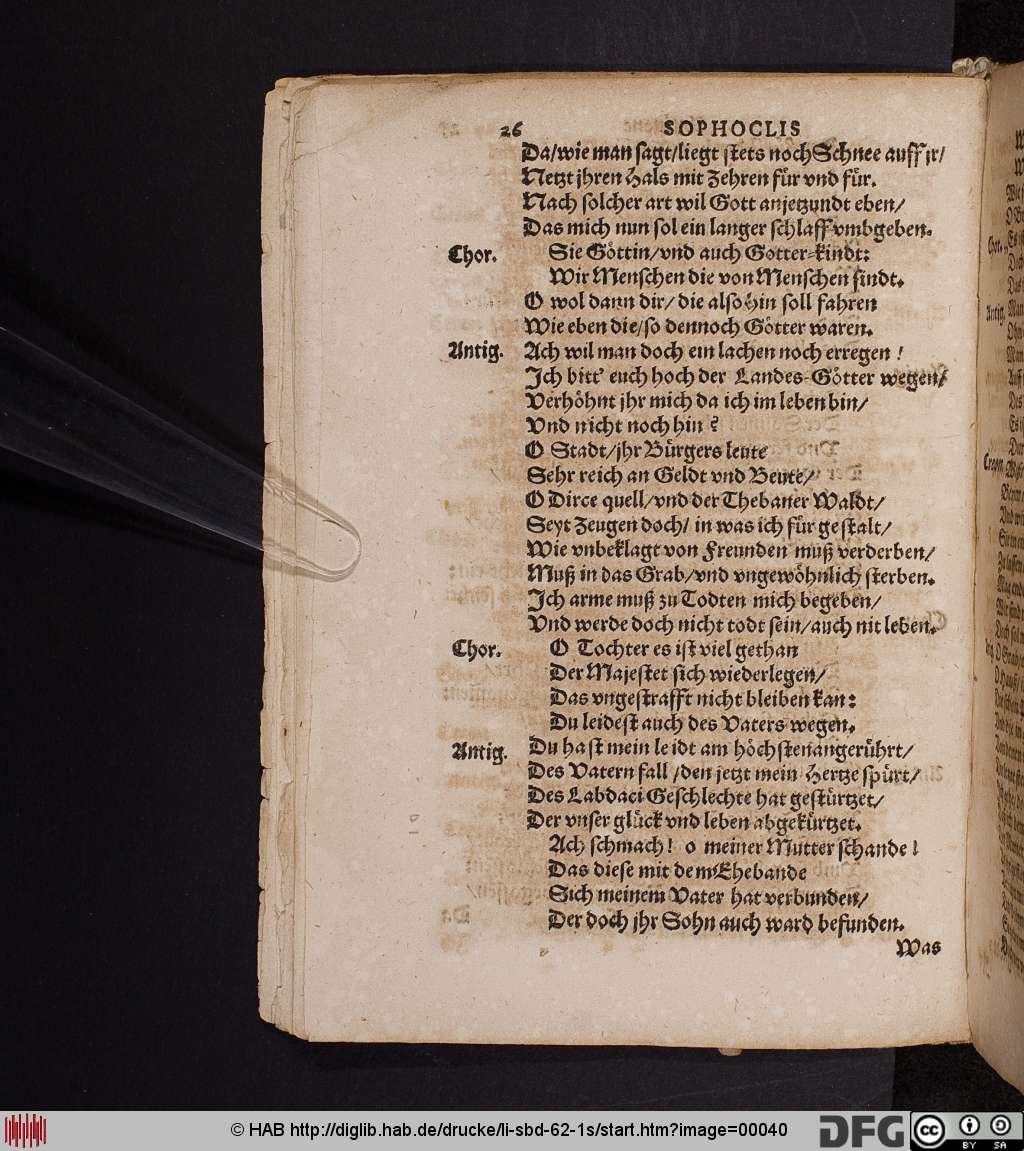 26 SOPHOCLIS
Da/wie man sagt/liegt stets noch Schnee auff jr/
Netzt jhren Hals mit Zehren für vnd für.
Nach solcher art wil Gott anjetzundt eben/
Das mich nun sol ein langer schlaff vmbgeben.
Chor. Sie Göttin/vnd auch Gotter-kindt:
Wir Menschen die von Menschen sindt.
O wol dann dir/ die also hin soll fahren
Wie eben die/so dennoch Götter waren.
Antig. Ach wil man doch ein lachen noch erregen!
Ich bitt' euch hoch der Landes-Götter wegen/
Verhöhnt jhr mich da ich im leben bin/
Vnd nicht noch hin?
O Stadt/jhr Bürgers leute
Sehr reich an Geldt vnd Beute/
O Dirce quell/vnd der Thebaner Waldt/
Seyt Zeugen doch/ in was ich für gestalt/
Wie vnbeklagt von Freunden muß verderben/
Muß in das Grab/vnd vngewöhnlich sterben.
Ich arme muß zu Todten mich begeben/
Vnd werde doch nicht todt sein/auch nit leben.
Chor. O Tochter es ist viel gethan
Der Majestet sich wiederlegen/
Das vngestrafft nicht bleiben kan:
Du leidest auch des Vaters wegen.
Antig. Du hast mein leidt am höchsten angerührt/
Des Vatern fall/den jetzt mein Hertze spürt/
Des Labdaci Geschlechte hat gestürtzet/
Der vnser glück vnd leben abgekürtzet.
Ach schmach! o meiner Mutter schande!
Das diese mit dem Ehebande
Sich meinem Vater hat verbunden/
Der doch jhr Sohn auch ward befunden.
Was
© HAB http://diglib.hab.de/drucke/li-sbd-62-1s/start.htm?image=00040
DFG
cc BY SA